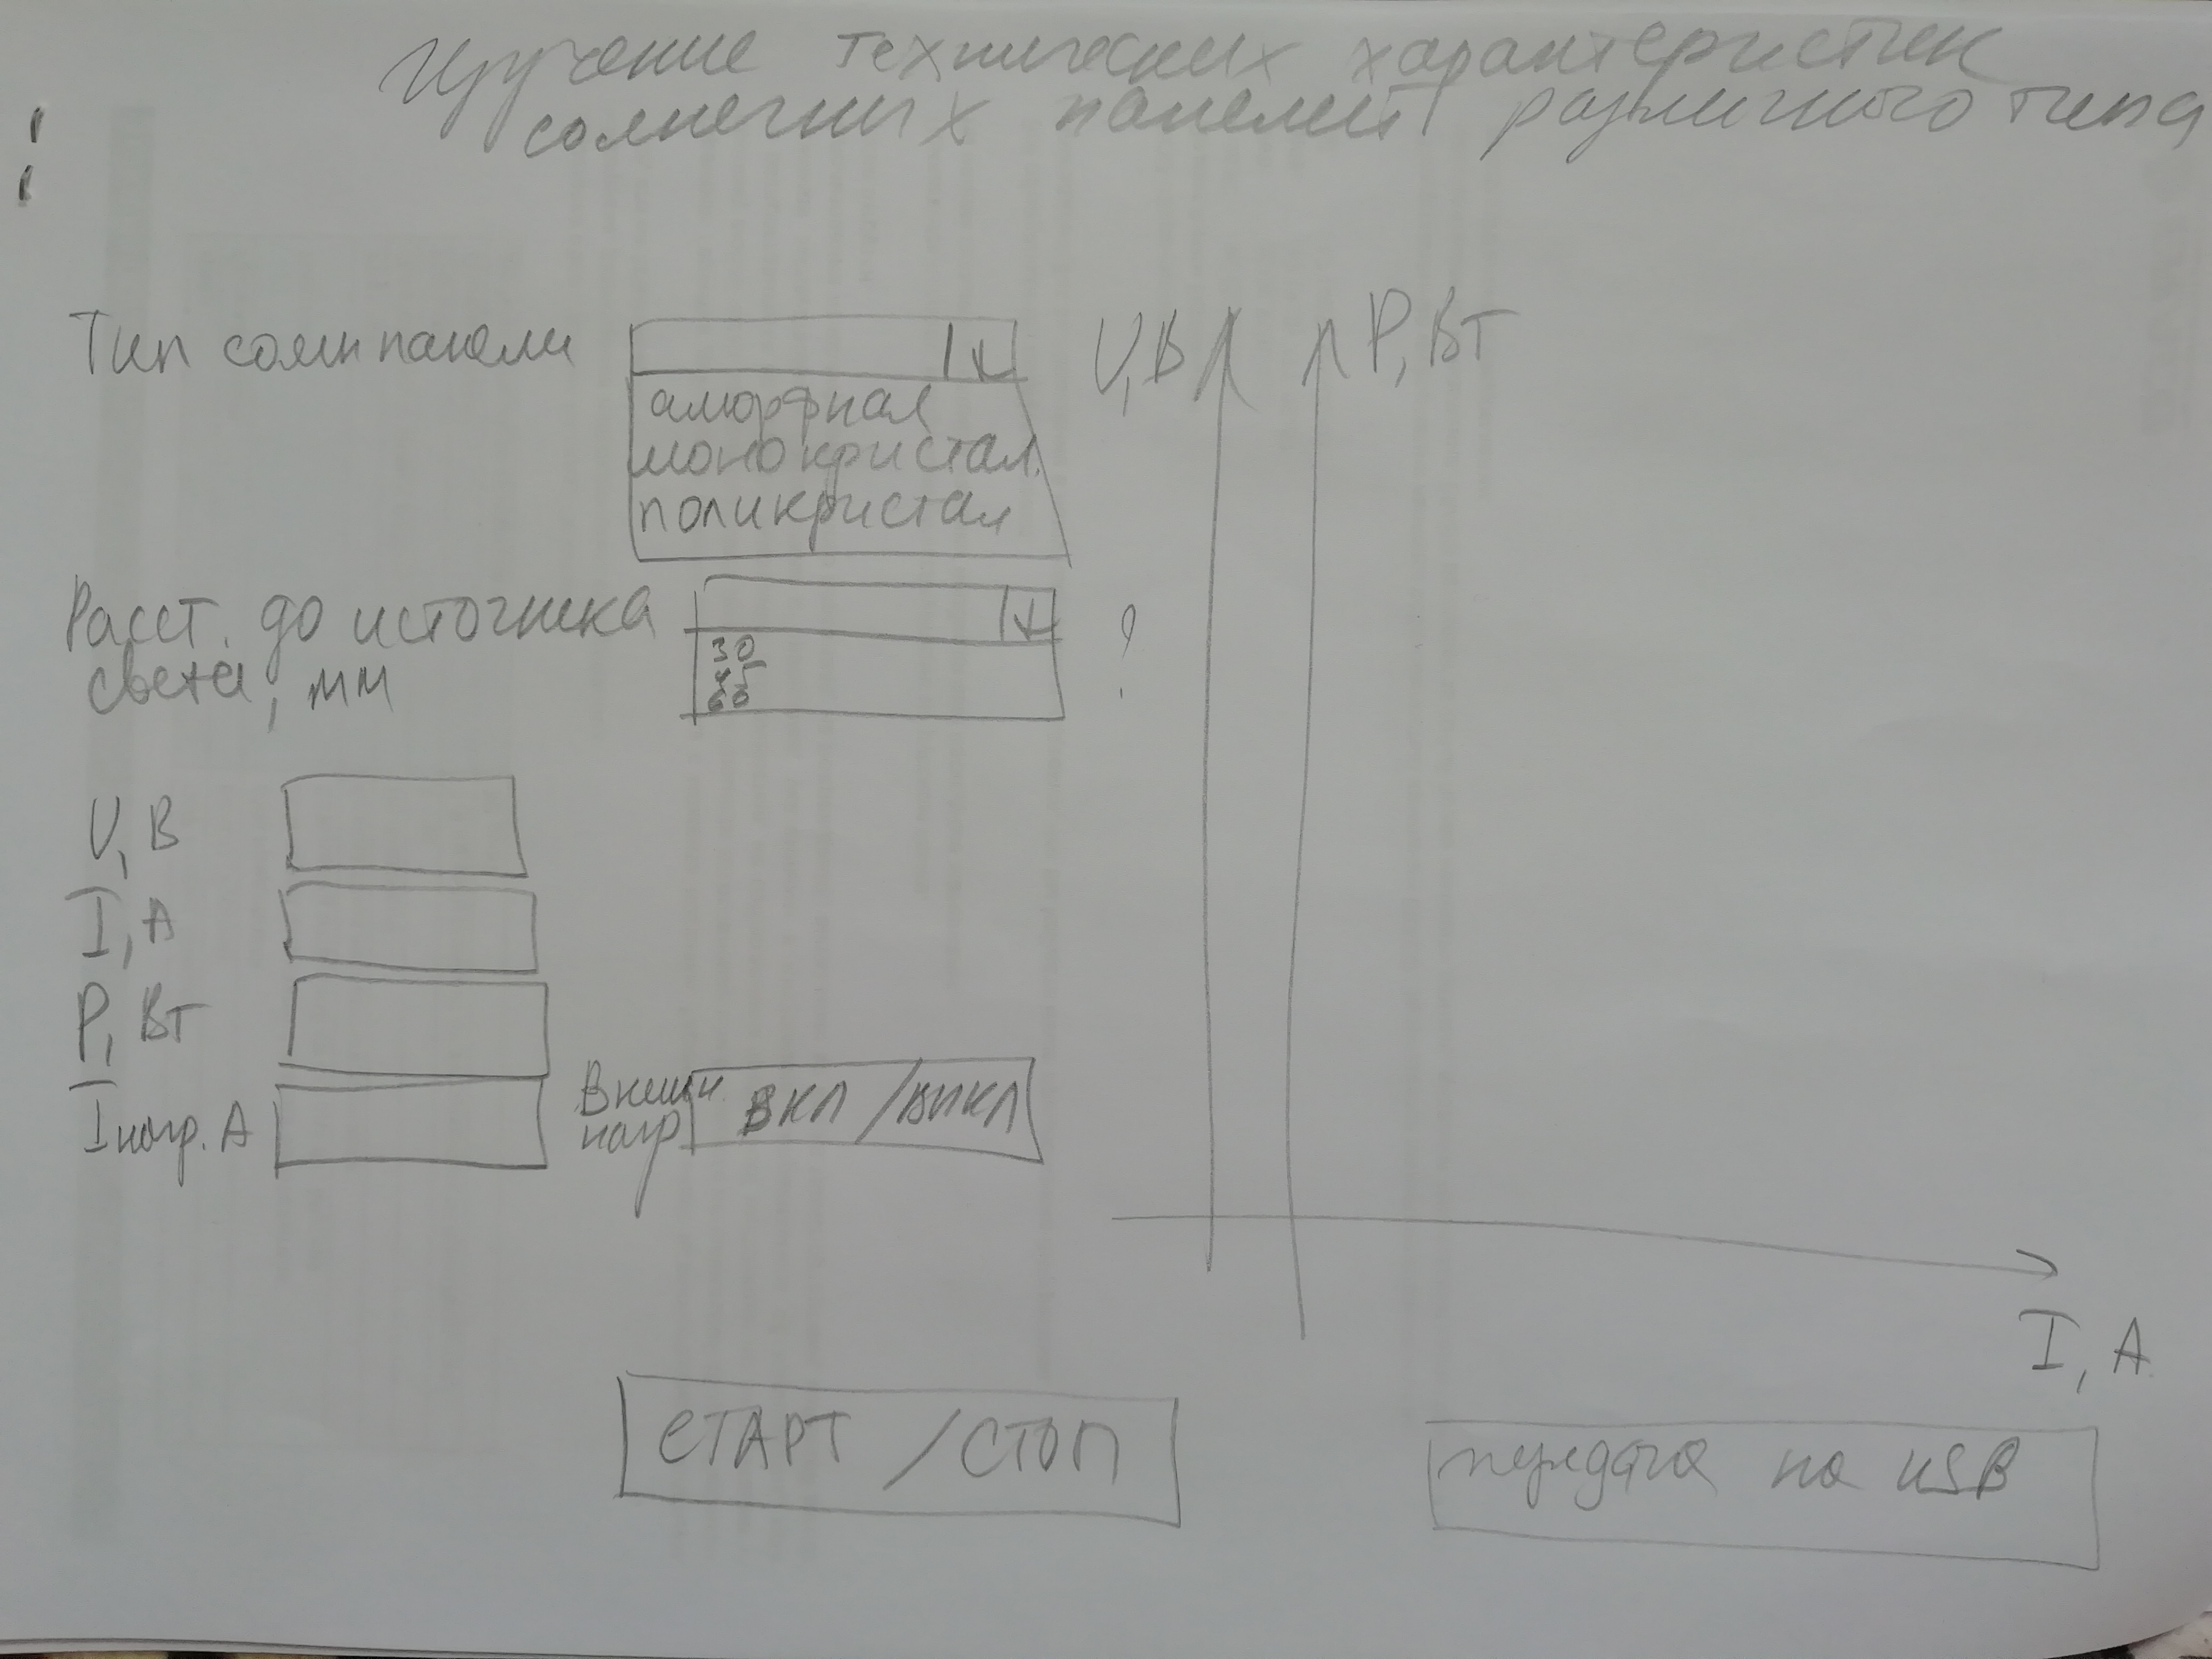 Изучение технических характеристик
солнечных панелей различного типа
Тип солн панели
аморфная
монокристал.
поликристал
U, В
P, Вт
Расст. до источника
света, мм
30
45
60
?
U, В
I, А
P, Вт
Iнагр. А
Внешн.
нагр
ВКЛ / ВЫКЛ
I, А
СТАРТ / СТОП
передача на USB